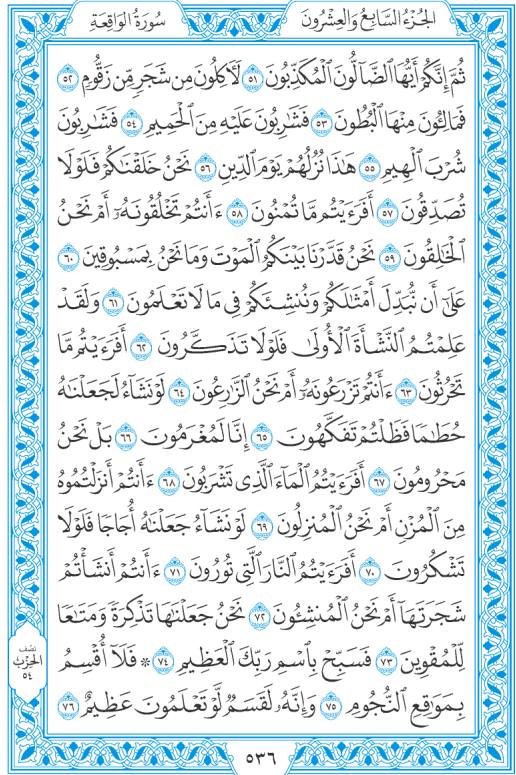 الجُزْءُ السَّابِعُ وَالعِشْرُونَ
سُورَةُ الوَاقِعَةِ
ثُمَّ إِنَّكُمْ أَيُّهَا ٱلضَّآلُّونَ ٱلْمُكَذِّبُونَ ٥١ لَأٓكِلُونَ مِن شَجَرٍ مِّن زَقُّومٍ ٥٢
فَمَالِـُٔونَ مِنْهَا ٱلْبُطُونَ ٥٣ فَشَٰرِبُونَ عَلَيْهِ مِنَ ٱلْحَمِيمِ ٥٤ فَشَٰرِبُونَ
شُرْبَ ٱلْهِيمِ ٥٥ هَٰذَا نُزُلُهُمْ يَوْمَ ٱلدِّينِ ٥٦ نَحْنُ خَلَقْنَٰكُمْ فَلَوْلَا
تُصَدِّقُونَ ٥٧ أَفَرَءَيْتُم مَّا تُمْنُونَ ٥٨ ءَأَنتُمْ تَخْلُقُونَهُۥٓ أَمْ نَحْنُ
ٱلْخَٰلِقُونَ ٥٩ نَحْنُ قَدَّرْنَا بَيْنَكُمُ ٱلْمَوْتَ وَمَا نَحْنُ بِمَسْبُوقِينَ ٦٠
عَلَىٰٓ أَن نُّبَدِّلَ أَمْثَٰلَكُمْ وَنُنشِئَكُمْ فِى مَا لَا تَعْلَمُونَ ٦١ وَلَقَدْ
عَلِمْتُمُ ٱلنَّشْأَةَ ٱلْأُولَىٰ فَلَوْلَا تَذَكَّرُونَ ٦٢ أَفَرَءَيْتُم مَّا
تَحْرُثُونَ ٦٣ ءَأَنتُمْ تَزْرَعُونَهُۥٓ أَمْ نَحْنُ ٱلزَّٰرِعُونَ ٦٤ لَوْ نَشَآءُ لَجَعَلْنَٰهُ
حُطَٰمًا فَظَلْتُمْ تَفَكَّهُونَ ٦٥ إِنَّا لَمُغْرَمُونَ ٦٦ بَلْ نَحْنُ
مَحْرُومُونَ ٦٧ أَفَرَءَيْتُمُ ٱلْمَآءَ ٱلَّذِى تَشْرَبُونَ ٦٨ ءَأَنتُمْ أَنزَلْتُمُوهُ
مِنَ ٱلْمُزْنِ أَمْ نَحْنُ ٱلْمُنزِلُونَ ٦٩ لَوْ نَشَآءُ جَعَلْنَٰهُ أُجَاجًا فَلَوْلَا
تَشْكُرُونَ ٧٠ أَفَرَءَيْتُمُ ٱلنَّارَ ٱلَّتِى تُورُونَ ٧١ ءَأَنتُمْ أَنشَأْتُمْ
شَجَرَتَهَآ أَمْ نَحْنُ ٱلْمُنشِـُٔونَ ٧٢ نَحْنُ جَعَلْنَٰهَا تَذْكِرَةً وَمَتَٰعًا
لِّلْمُقْوِينَ ٧٣ فَسَبِّحْ بِٱسْمِ رَبِّكَ ٱلْعَظِيمِ ٧٤ ۞ فَلَآ أُقْسِمُ
بِمَوَٰقِعِ ٱلنُّجُومِ ٧٥ وَإِنَّهُۥ لَقَسَمٌ لَّوْ تَعْلَمُونَ عَظِيمٌ ٧٦
نصف
الحزب
٥٤
٥٣٦